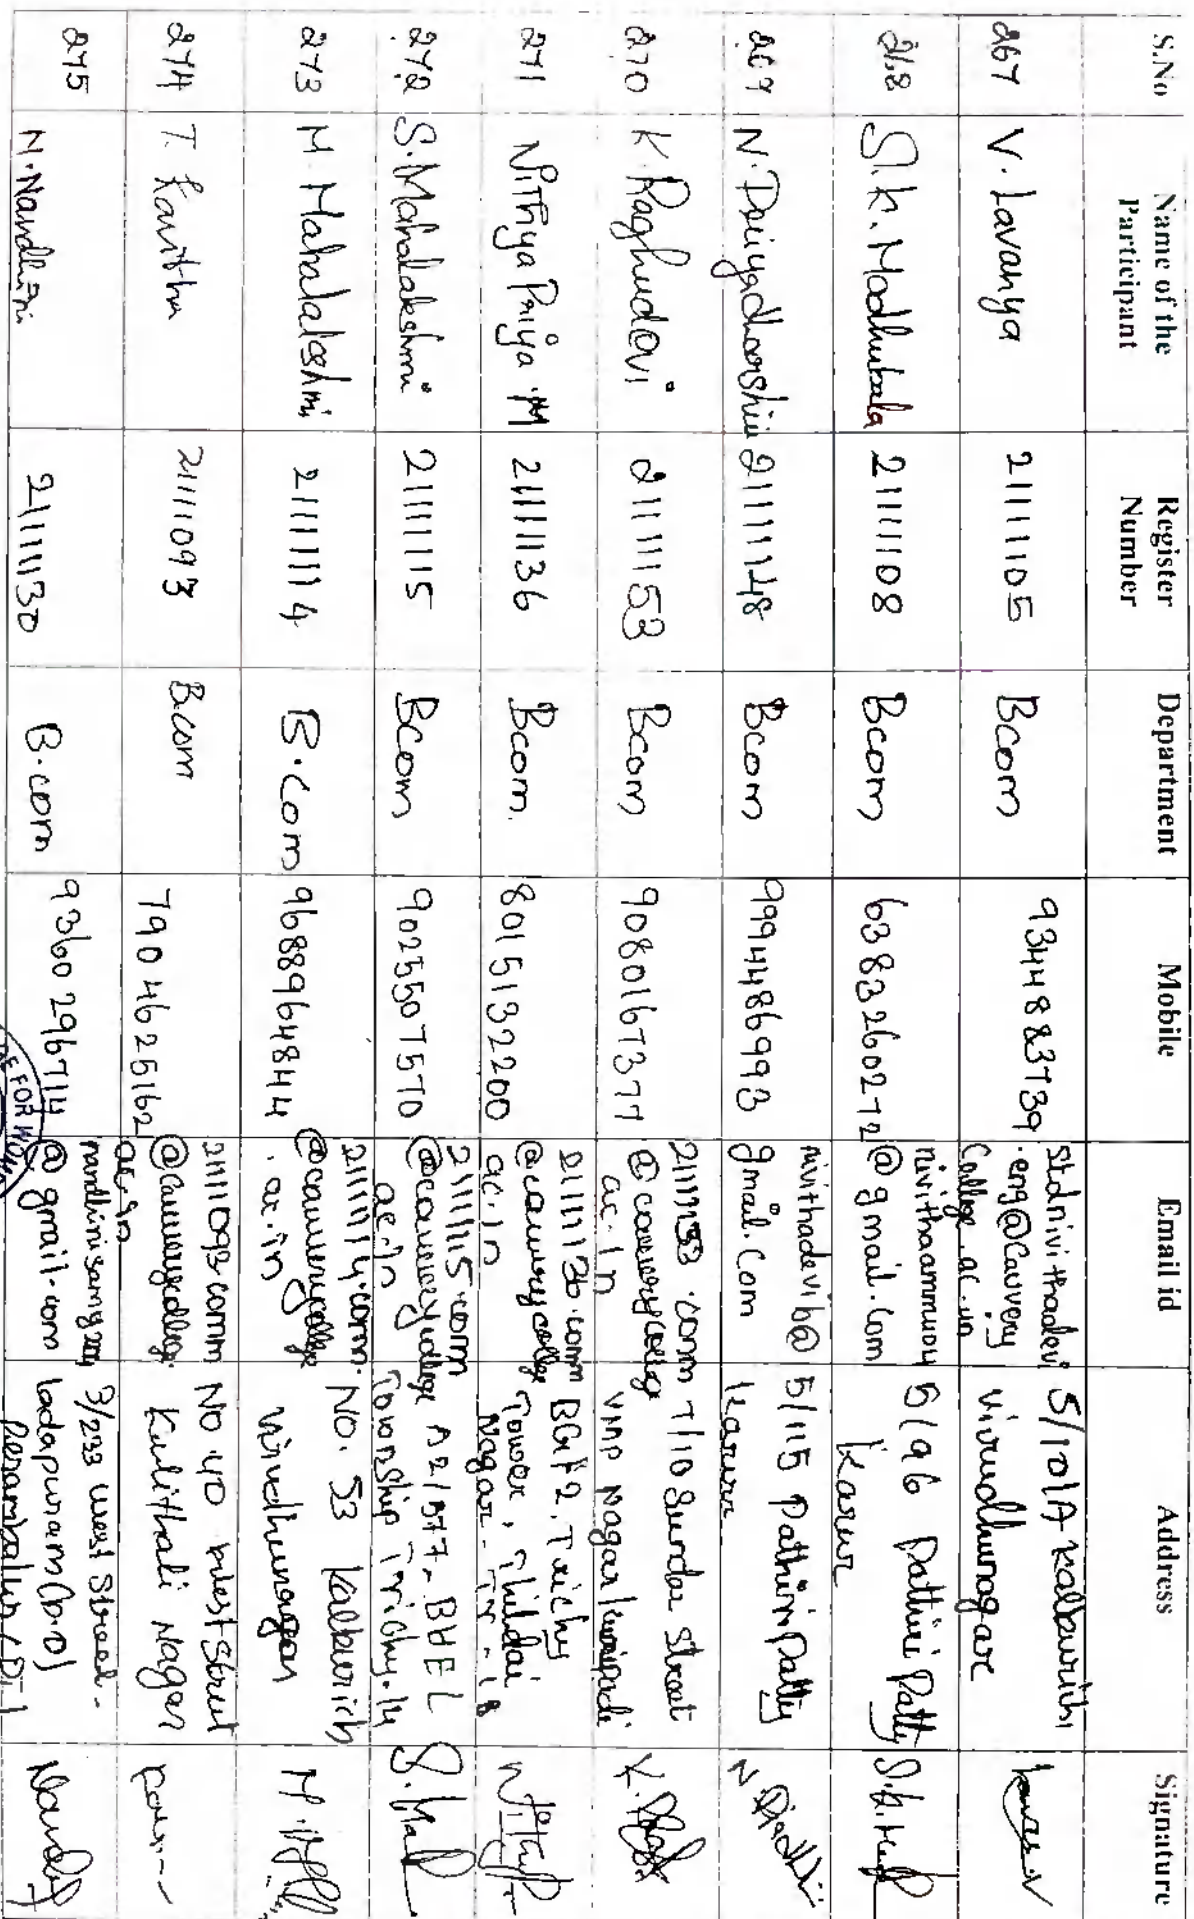 S.No Name of the Participant Register Number Department Mobile Email id Address Signature
267 V. Lavanya 21111105 Bcom 9344883739 stdnivithadevi.eng@Cauvery College.ac.in 5/101A Kalkurichi Virudhunagar
268 S.K. Madhubala 21111108 Bcom 6383260272 nivithaammu04@gmail.com 5/96 Pathiri Patty Karur
269 N. Priyadharshini 21111148 Bcom 9994486993 nivithadevib@gmail.com 5/115 Pathiri Patty Karur
270 K. Raghudevi 21111153 Bcom 9080167377 21111153.comm@cauverycollege ac.in 7/10 Sundar Street VMP Nagar
271 Nithya Priya.M 21111136 Bcom. 8015132200 21111136.comm@cauverycollege ac.in BG#2, Trichy Tower, Thillai Nagar. Try-18
272 S. Mahalakshmi 21111115 Bcom 9025507570 21111115.comm@cauverycollege ac.in A2/577, BHEL Township Trichy.14
273 M. Mahalakshmi 21111114 B.Com 9688964844 21111114.comm@cauverycollege.ac.in NO. 53 Kalkurich Virudhunagar
274 T. Kavitha 21111093 B.com 7904625162 21111093.comm@cauverycollege.ac.in NO 40 West Street Kulithalai Nagar
275 M. Nandhini 21111130 B.com 9360296714 @gmail.com 3/233 West Street- ladapuram (P.O) Perambalur (Dt)